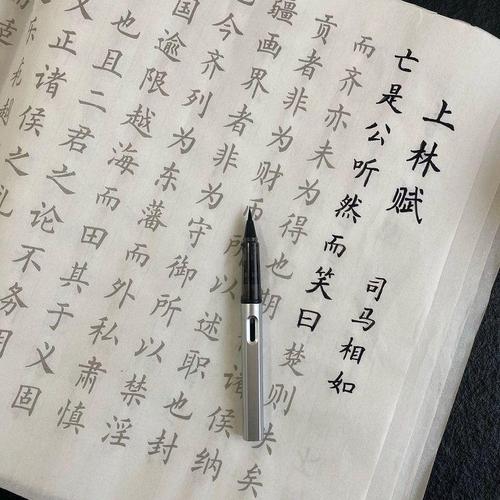 上林赋 司马相如
亡是公听然而笑曰楚则失矣
而齐亦未为得也诸侯纳
贡者非为财币所以述职也封
疆画界者非为守御所以禁淫也
今齐列为东藩而外私肃慎
国逾限越海而田其于义固
也且二君之论不务
义正诸侯之礼